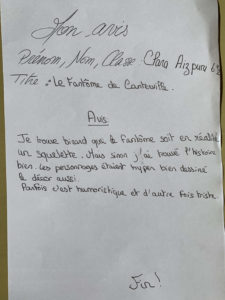 Mon avis
Prénom, Nom, Classe Clara Aizpuru 6
Titre : Le Fantôme de Canterville.
Avis
Je trouve bizard que le fantôme soit en réalité
un squelette. Mais sinon j'ai trouvé l'histoire
bien. Les personnages étaient hyper bien dessiné
le décor aussi.
Parfois c'est humoristique et d'autre fois triste.
Fin!